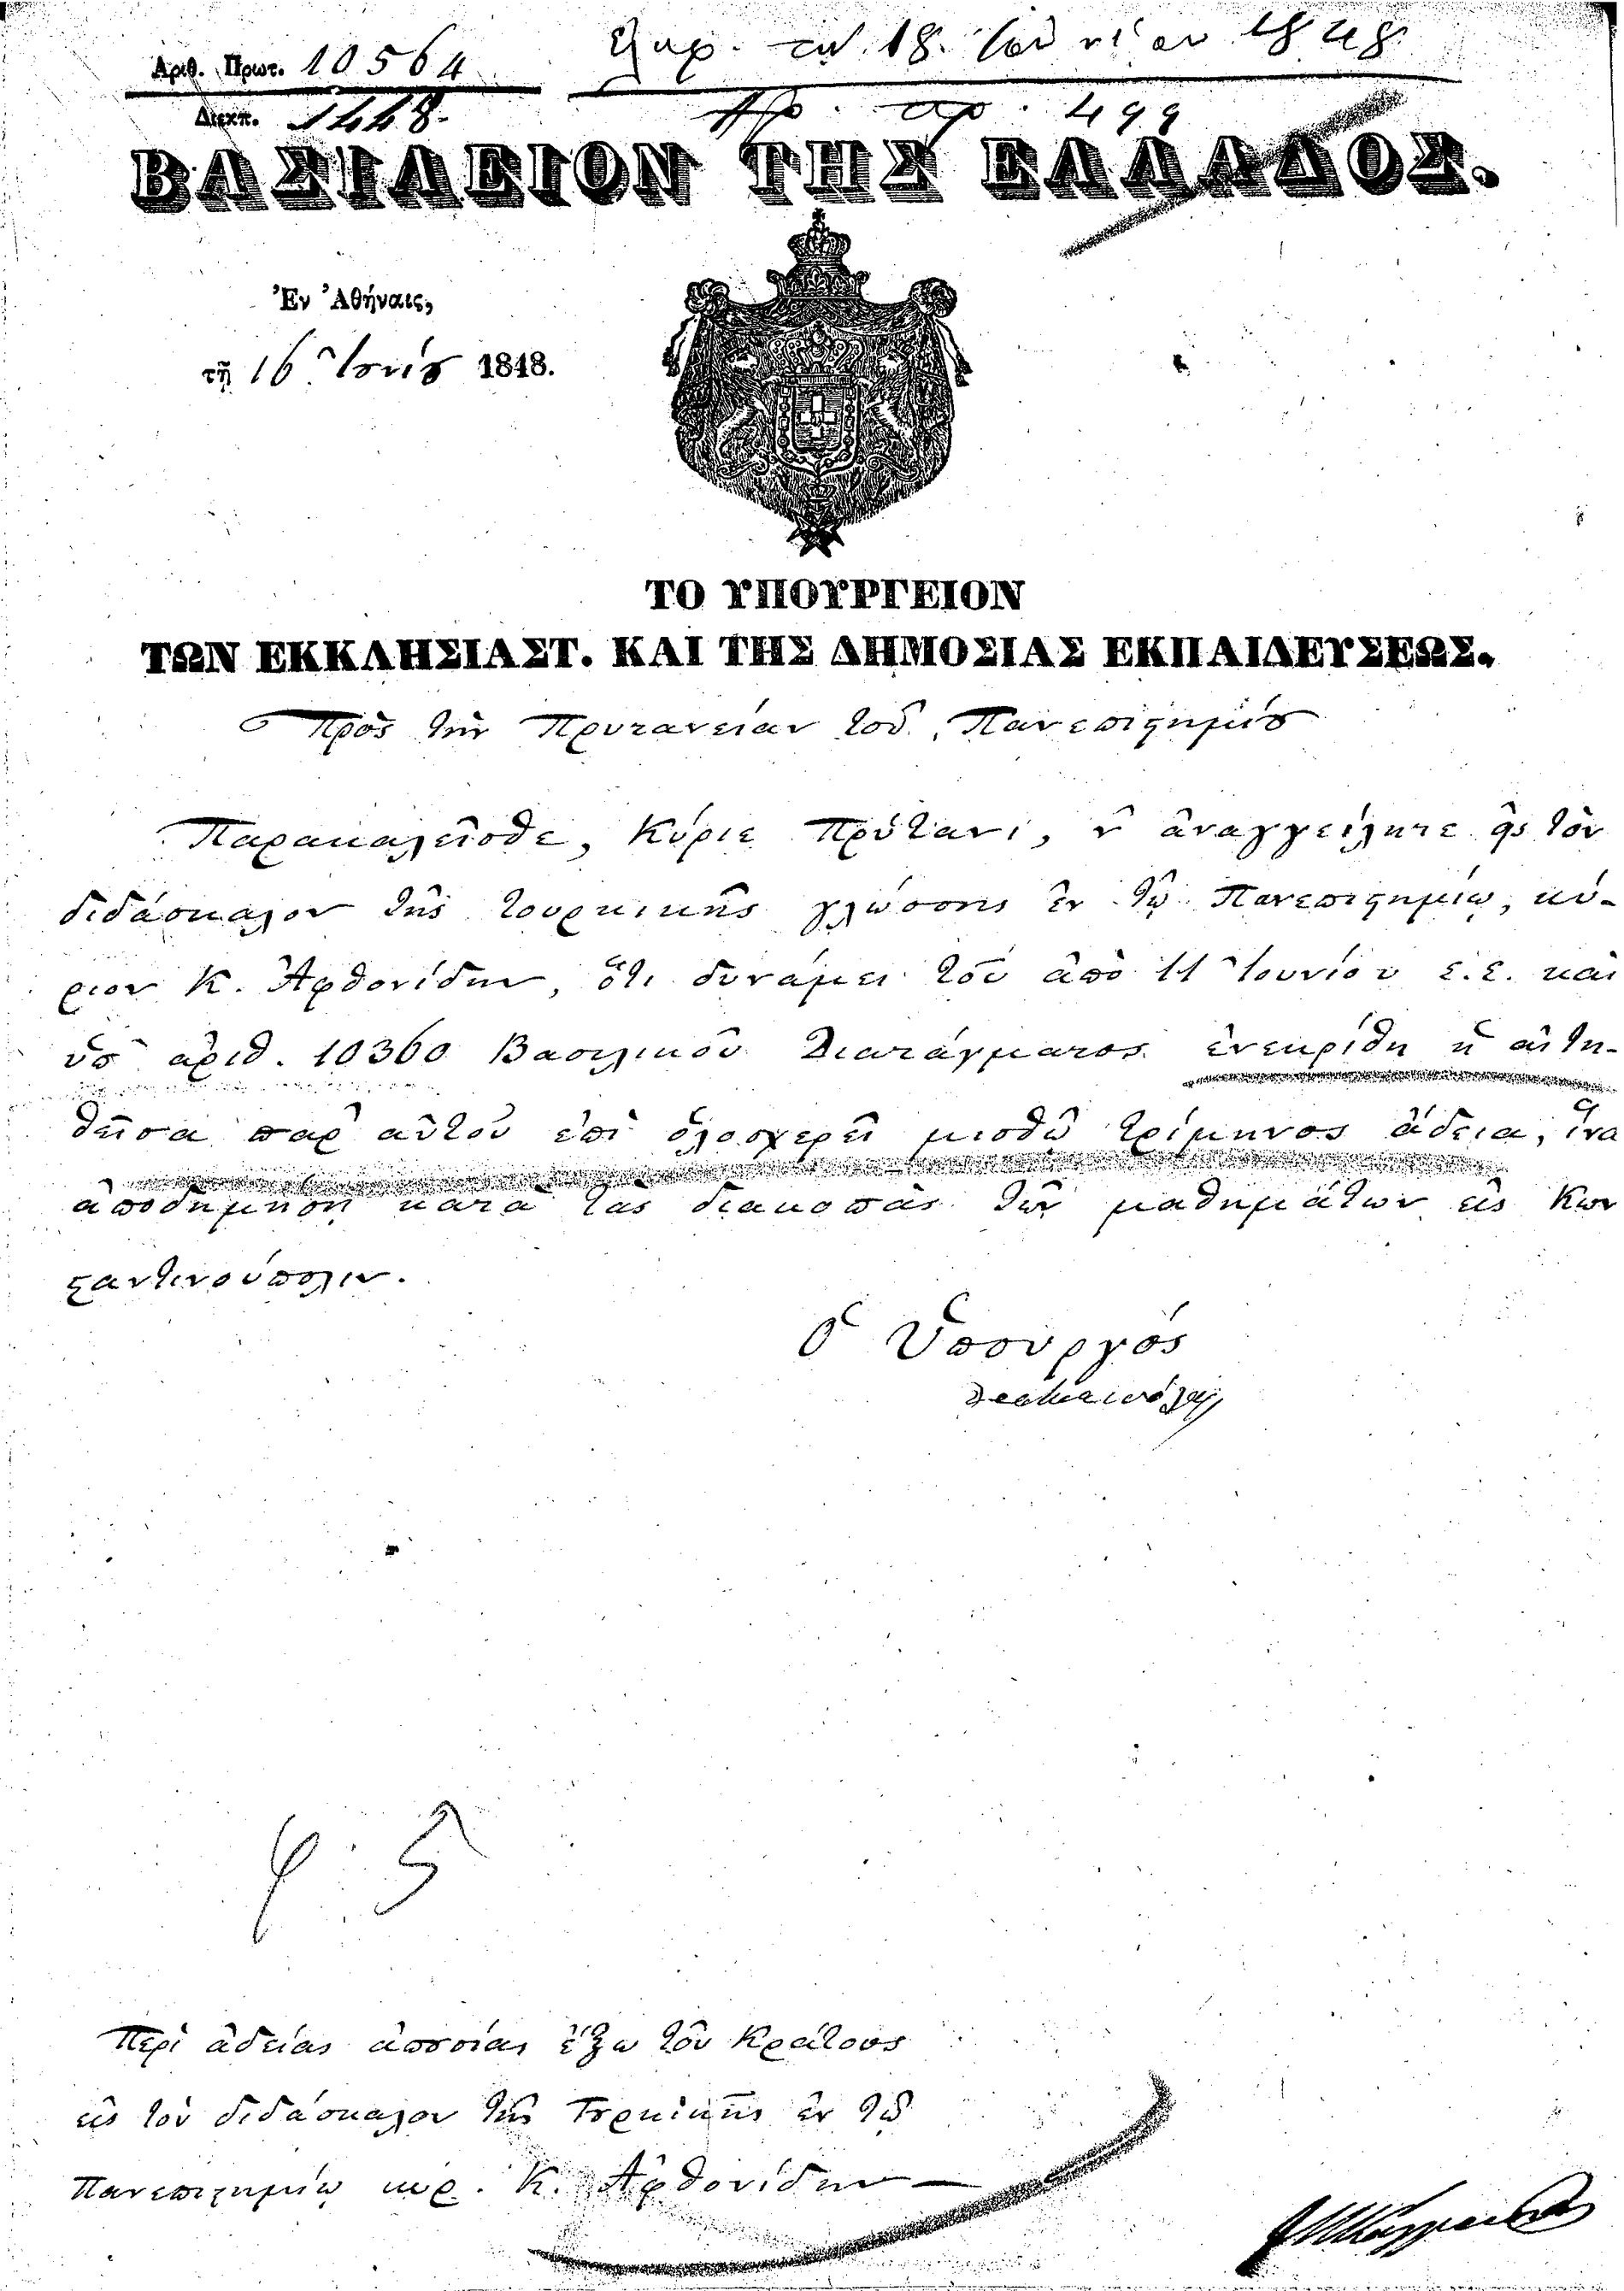 Ἀριθ. Πρωτ. 10564
Διεκπ. 5448.
τὴν 18. Ἰουνίου 1848.
Πρ. ἀρ. 499
ΒΑΣΙΛΕΙΟΝ ΤΗΣ ΕΛΛΑΔΟΣ.
Ἐν Ἀθήναις,
τῇ 16 Ἰουνίου 1848.
ΤΟ ΥΠΟΥΡΓΕΙΟΝ
ΤΩΝ ΕΚΚΛΗΣΙΑΣΤ. ΚΑΙ ΤΗΣ ΔΗΜΟΣΙΑΣ ΕΚΠΑΙΔΕΥΣΕΩΣ.
Πρὸς τὴν Πρυτανείαν τοῦ Πανεπιστημίου
Παρακαλεῖσθε, Κύριε Πρύτανι, ν' ἀναγγείλητε εἰς τὸν
διδάσκαλον τῆς τουρκικῆς γλώσσης ἐν τῷ Πανεπιστημίῳ, κύ-
ριον Κ. Ἀφθονίδην, ὅτι δυνάμει τοῦ ἀπὸ 11 Ἰουνίου ἐ.ἔ. καὶ
ὑπ' ἀριθ. 10360 Βασιλικοῦ Διατάγματος ἐνεκρίθη ἡ αἰτη-
θεῖσα παρ' αὐτοῦ ἐπὶ ὁλοσχερεῖ μισθῷ τρίμηνος ἄδεια, ἵνα
ἀποδημήσῃ κατὰ τὰς διακοπὰς τῶν μαθημάτων εἰς Κων
σταντινούπολιν.
Ὁ Ὑπουργὸς
Περὶ ἀδείας ἀπουσίας ἔξω τοῦ Κράτους
εἰς τὸν διδάσκαλον τῆς Τουρκικῆς ἐν τῷ
Πανεπιστημίῳ κύρ. Κ. Ἀφθονίδην